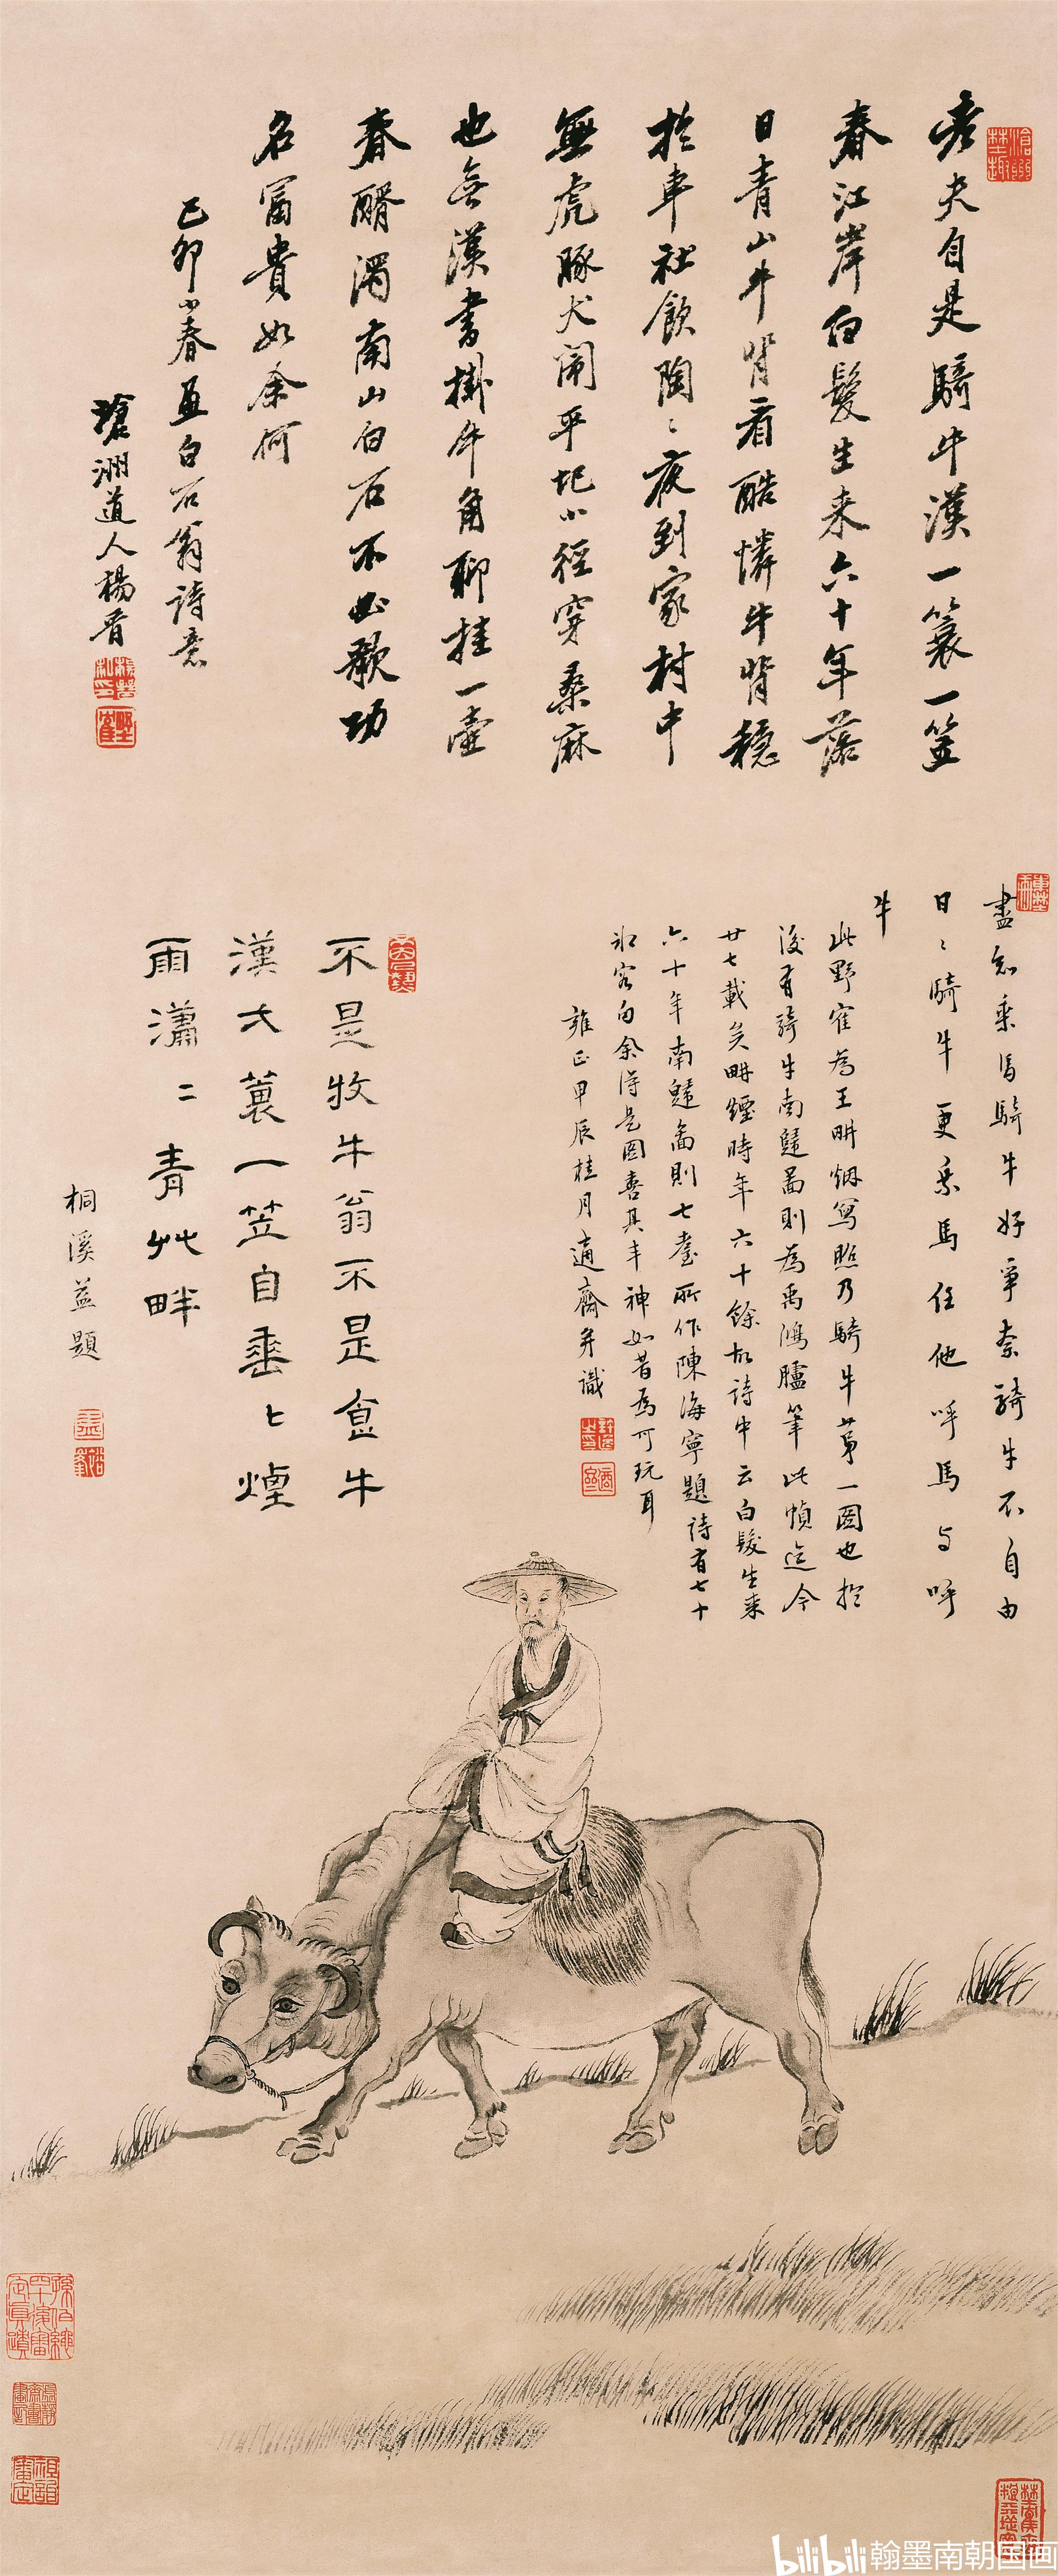 老夫自是騎牛漢一簑一笠
春江岸白髮生來六十年落
日青山牛背看酷憐牛背穩
於車社飲陶〻夜到家村中
無虎豚犬閙平圯小徑穿桑麻
也無漢書掛牛角聊挂一壺
春醑濁南山白石不必歌功
名富貴如余何
己卯小春画白石翁詩意
滄洲道人楊晋
盡怱乘馬騎牛好爭奈騎牛不自由
日〻騎牛更乘馬任他呼馬与呼
牛
此野寉為王畊烟寫照乃騎牛第一圖也於
後有騎牛南歸啚則為禹鴻臚筆此幀迄今
廿七載矣畊煙時年六十餘故詩中云白髮生来
六十年南歸啚則七耋所作陳海寧題詩有七十
衫客句余得是圖喜其丰神如昔為可玩耳
雍正甲辰桂月適齋并識
不是牧牛翁不是飯牛
漢大蓑一笠自垂〻煙
雨瀟〻青艸畔
桐溪益題
bilibili 翰墨南朝国画